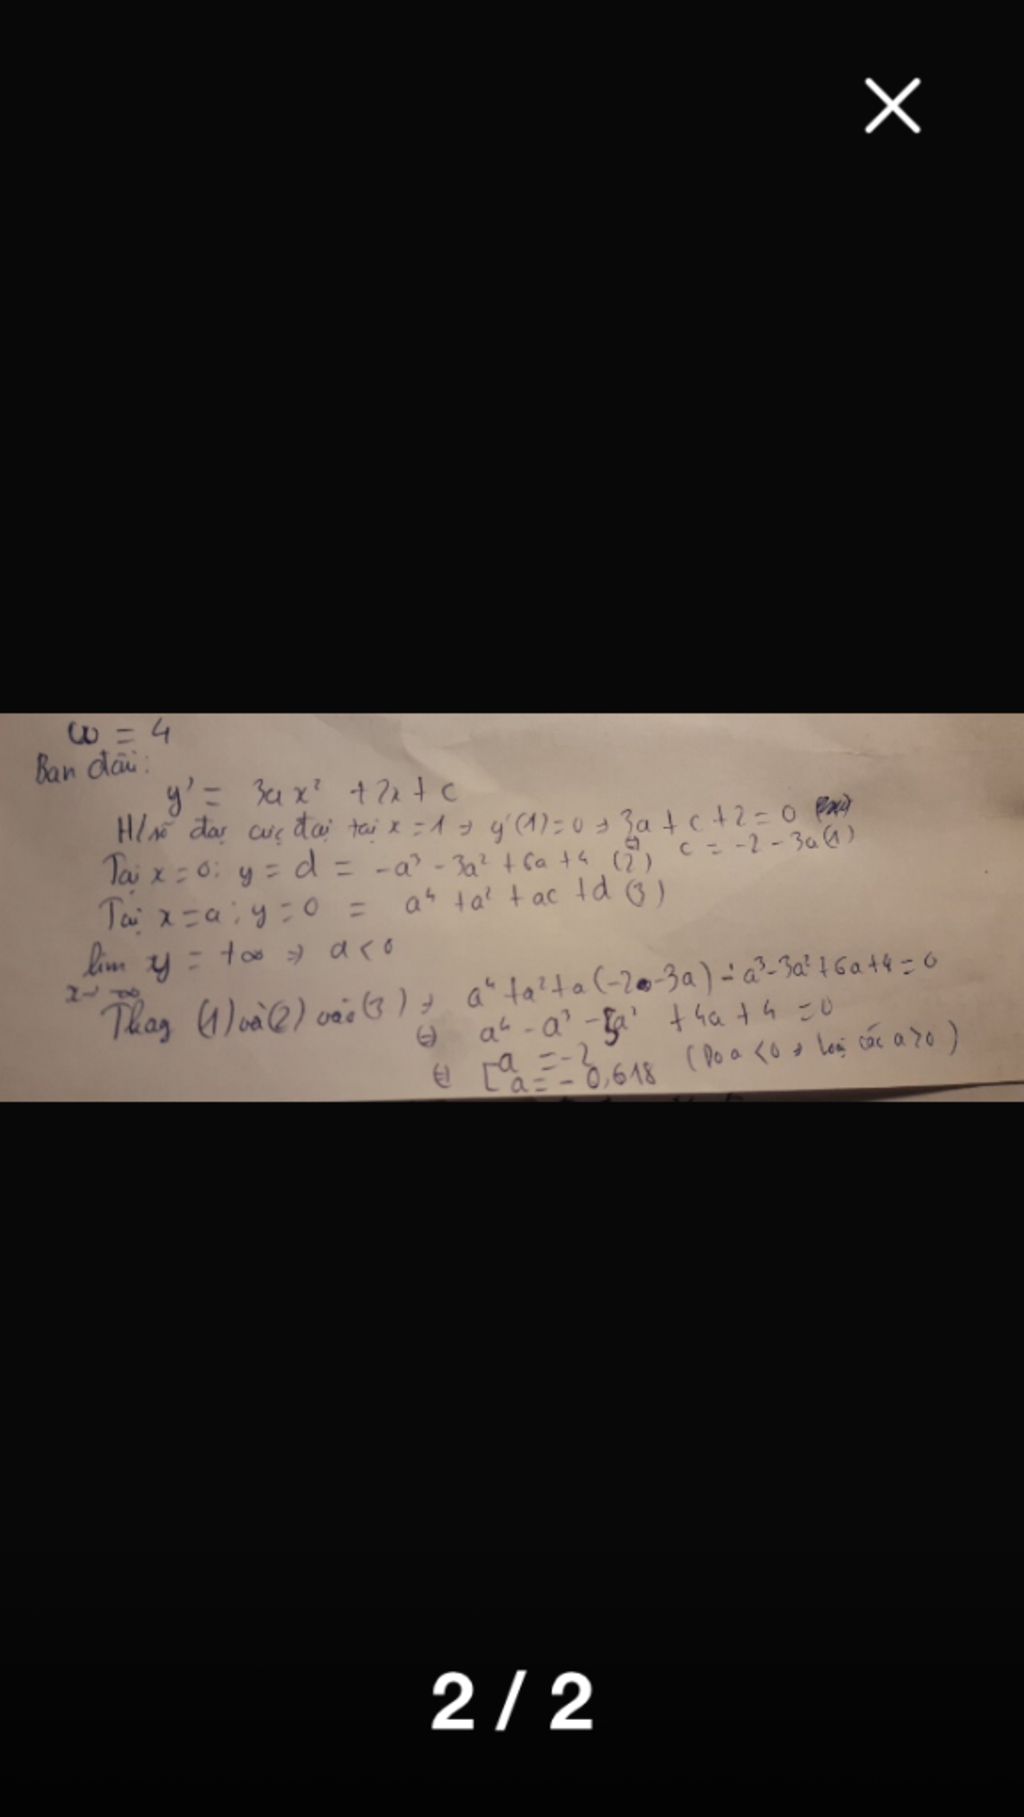 ω = 4
Ban đầu:
y' = 3ax² + 2x + c
H/số đạt cực đại tại x = 1 ⇒ y'(1) = 0 ⇒ 3a + c + 2 = 0
⇔ c = -2 - 3a (1)
Tại x = 0: y = d = -a³ - 3a² + 6a + 4 (2)
Tại x = a: y = 0 = a⁴ + a² + ac + d (3)
lim y = +∞ ⇒ a < 0
x→-∞
Thay (1) và (2) vào (3) ⇒ a⁴ + a² + a(-2 - 3a) - a³ - 3a² + 6a + 4 = 0
⇔ a⁴ - a³ - 5a² + 4a + 4 = 0
⇔ [ a = -2
a = -0,618 (Do a < 0 ⇒ loại các a > 0)
2 / 2